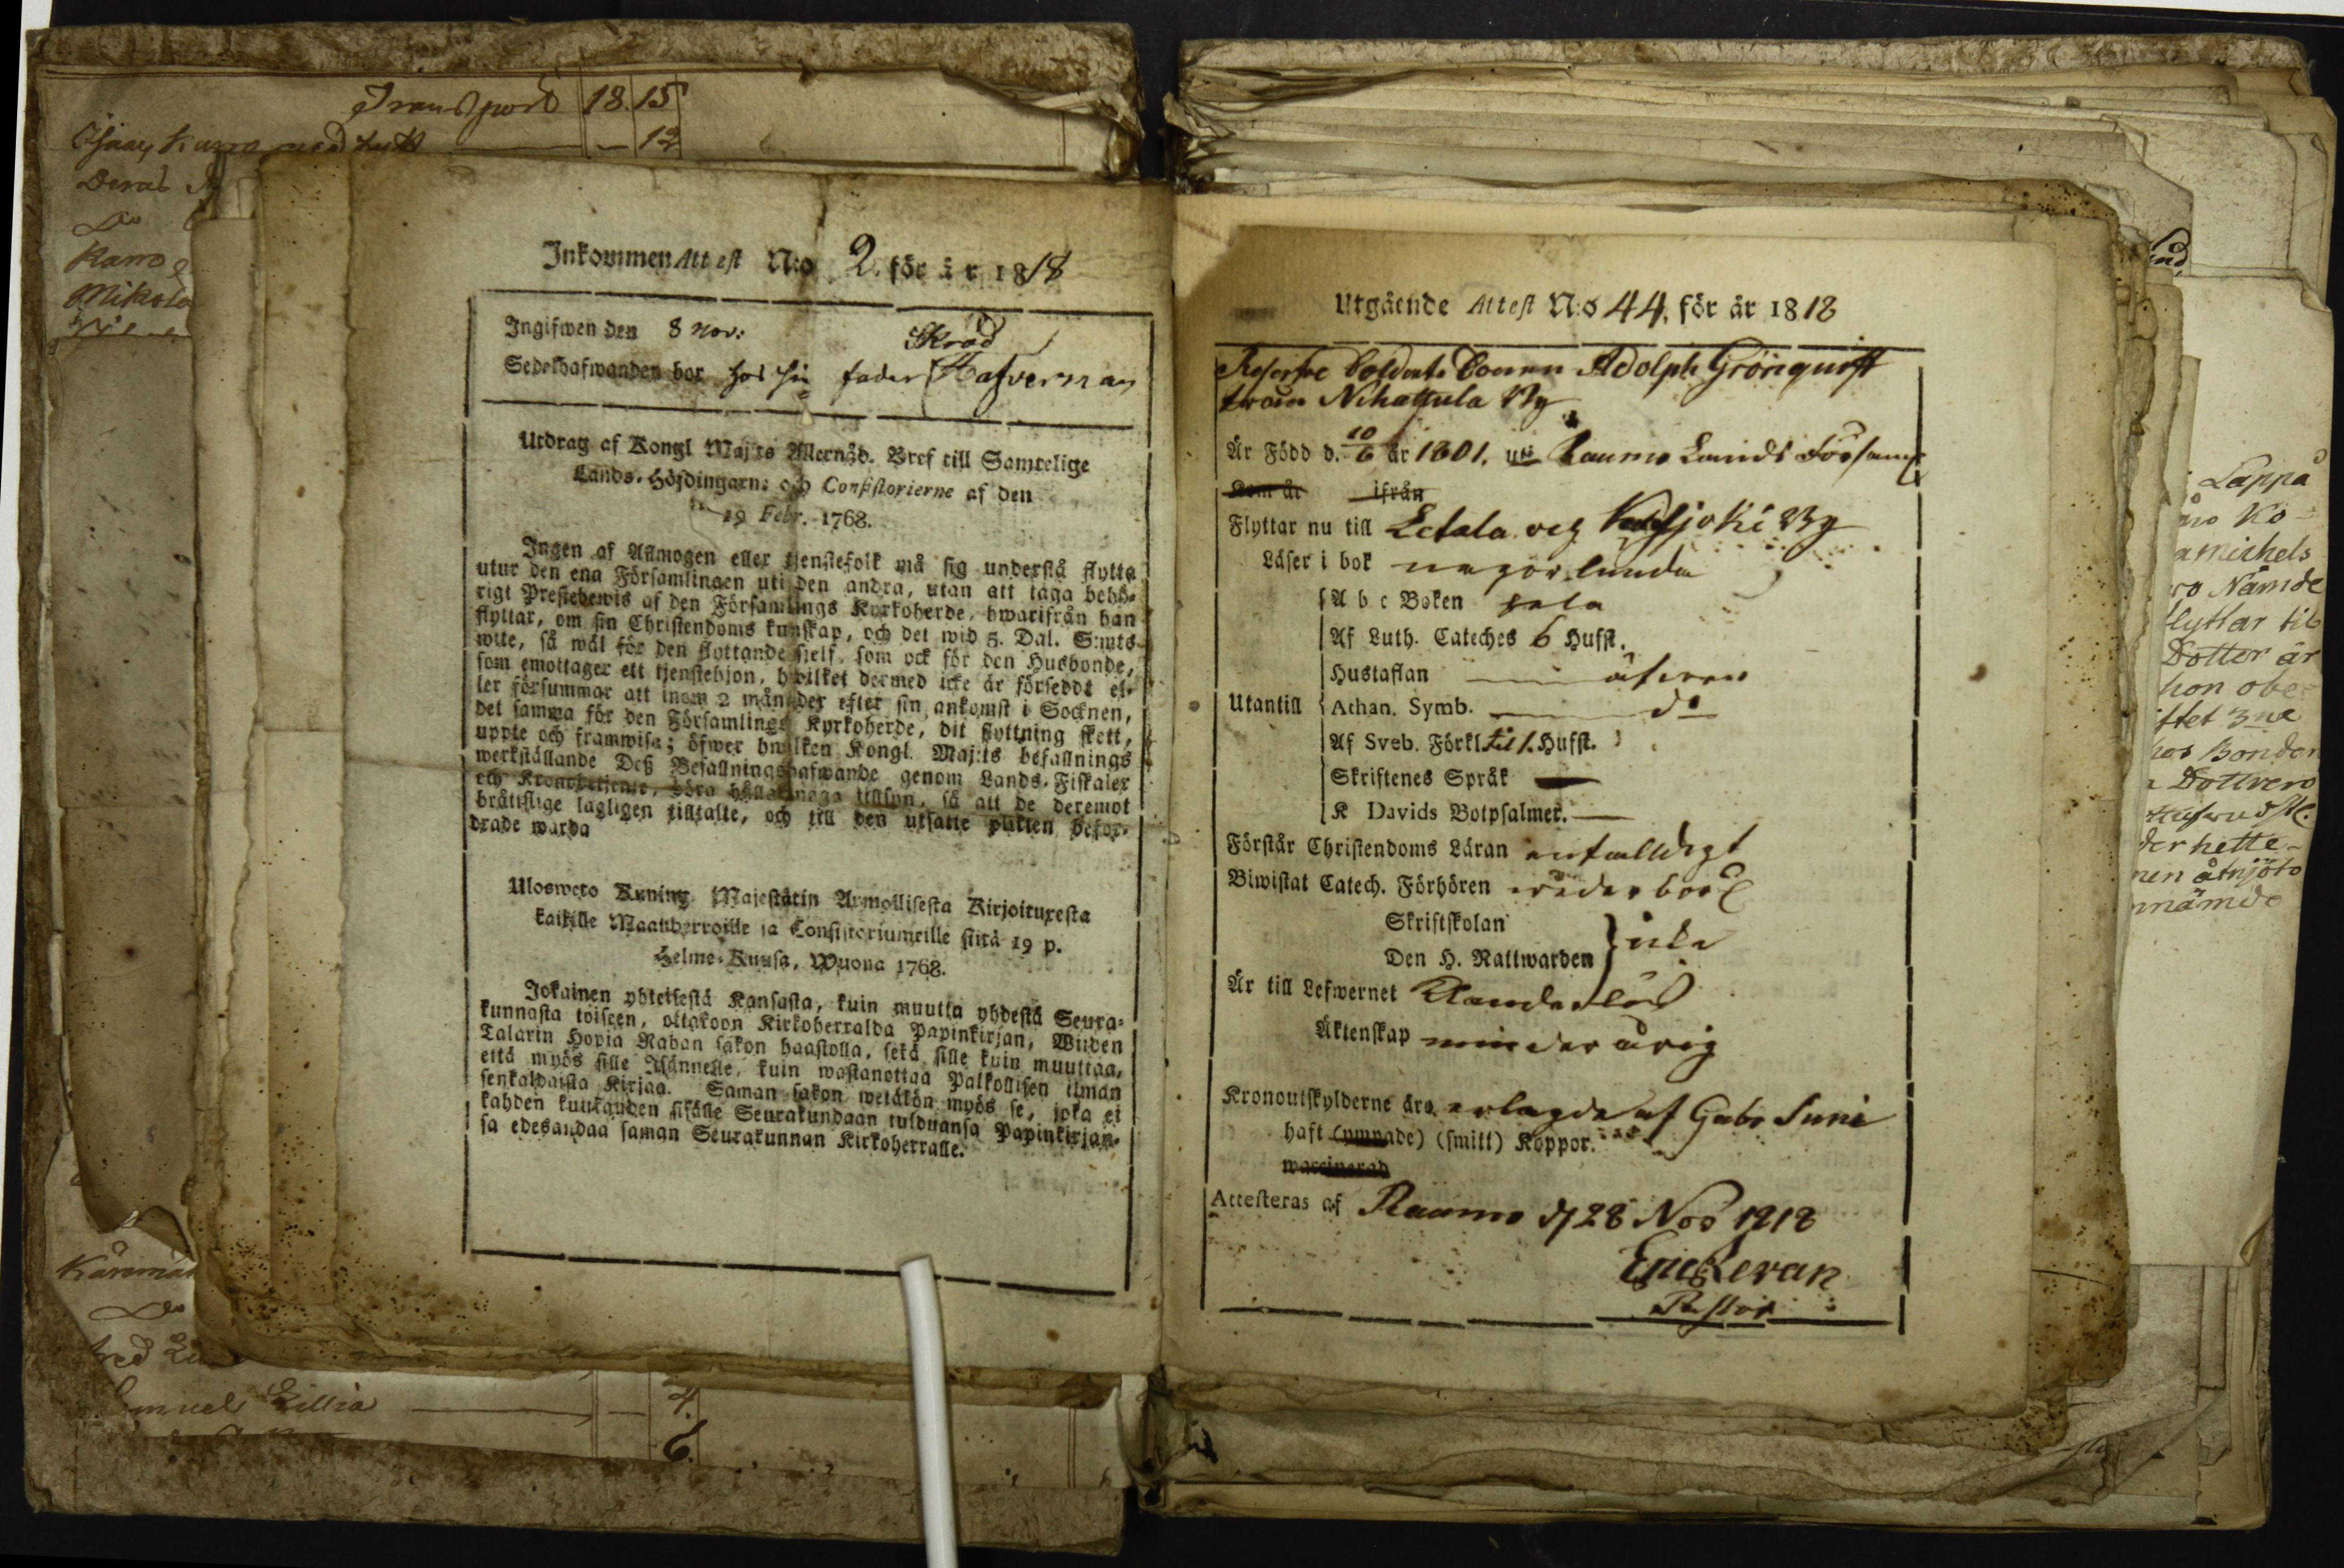 Transport 18. 15
12
Deras
Do
Karro
Mikola
Inkommen Attest N:o 2. för år 1818
Ingifwen den 8 Nov:
Skräd
Sedelhafwanden bor hos sin fader Hafverman
Utdrag af Kongl Maj:ts Allernåd. Bref till Samtelige
Lands-Höfdingarne och Consistorierne af den
19 Febr. 1768.
Ingen af Allmogen eller tjenstefolk må sig understå flytta
utur den ena Församlingen uti den andra, utan att taga behö-
rigt Prestebewis af den Församlings Kyrkoherde, hwarifrån han
flyttar, om sin Christendoms kunskap, och det wid 5. Dal. S:mts
wite, så wäl för den flyttande sielf, som ock för den Husbonde,
som emottager ett tjenstehjon, hwilket dermed icke är försedt el-
ler försummar att inom 2 månader efter sin ankomst i Socknen,
det samma för den Församlings Kyrkoherde, dit flyttning skett,
uppte och framwisa; öfwer hwilken Kongl. Maj:ts befallnings
werkställande Deß Befallningshafwande genom Lands-Fiskaler
och Kronobetjente, böra hålla noga tillsyn, så att de deremot
bråttslige lagligen tilltalte, och till den utsatte plikten befor-
drade warda
Ulosweto Kuning. Majestätin Armollisesta Kirjoituxesta
kaikille Maanherroille ja Consistoriumeille siitä 19 p.
Helme-Kuusa, Wuona 1768.
Jokainen yhteisestä Kansasta, kuin muutta yhdestä Seura-
kunnasta toiseen, ottakoon Kirkoherralda Papinkirjan, Wiiden
Talarin Hopia Rahan sakon haastolla, sekä sille kuin muuttaa,
että myös sille Isännelle, kuin wastanottaa Palkollisen ilman
senkaldaista Kirjaa. Saman sakon wetäkön myös se, joka ei
kahden kuukauden sisälle Seurakundaan tulduansa Papinkirjan-
sa edesandaa saman Seurakunnan Kirkoherralle.
Kärsmä
Do
Samuel Lillia 4.
6.
Utgående Attest N:o 44. för år 1818
Reserve Soldats Sonen Adolph Grönqvist
från Nihattula By
Är Född d. 10/6 år 1801. uti Raumo Lands Församl
Kom år ifrån
Flyttar nu till Letala och By
Läser i bok någorlunda
A b c Boken hela
Af Luth. Cateches 6 Hufst.
Hustaflan äfven
Utantill Athan. Symb. do
Af Sveb. Förkl. til 1. Hufst.
Skriftenes Språk —
K Davids Botpsalmer. —
Förstår Christendoms Läran enfalldigt
Biwistat Catech. Förhören wederborl
Skriftskolan
Den H. Nattwarden } icke
Är till Lefwernet Klanderlös
Äktenskap minderårig
Kronoutskylderne äro erlagde af Gabr Suni
haft (ymnade) (smitt) Koppor.
waccinerad
Attesteras af Raumo d 28 Nov 1818
Eric Levan
Pastor
Lappä
Ko-
michels
Nämde
flyttar til
Dotter är
hon obe-
ftet 3ne
hos Bonden
Dottrero
der hette-
nen åtnjöto
nämde